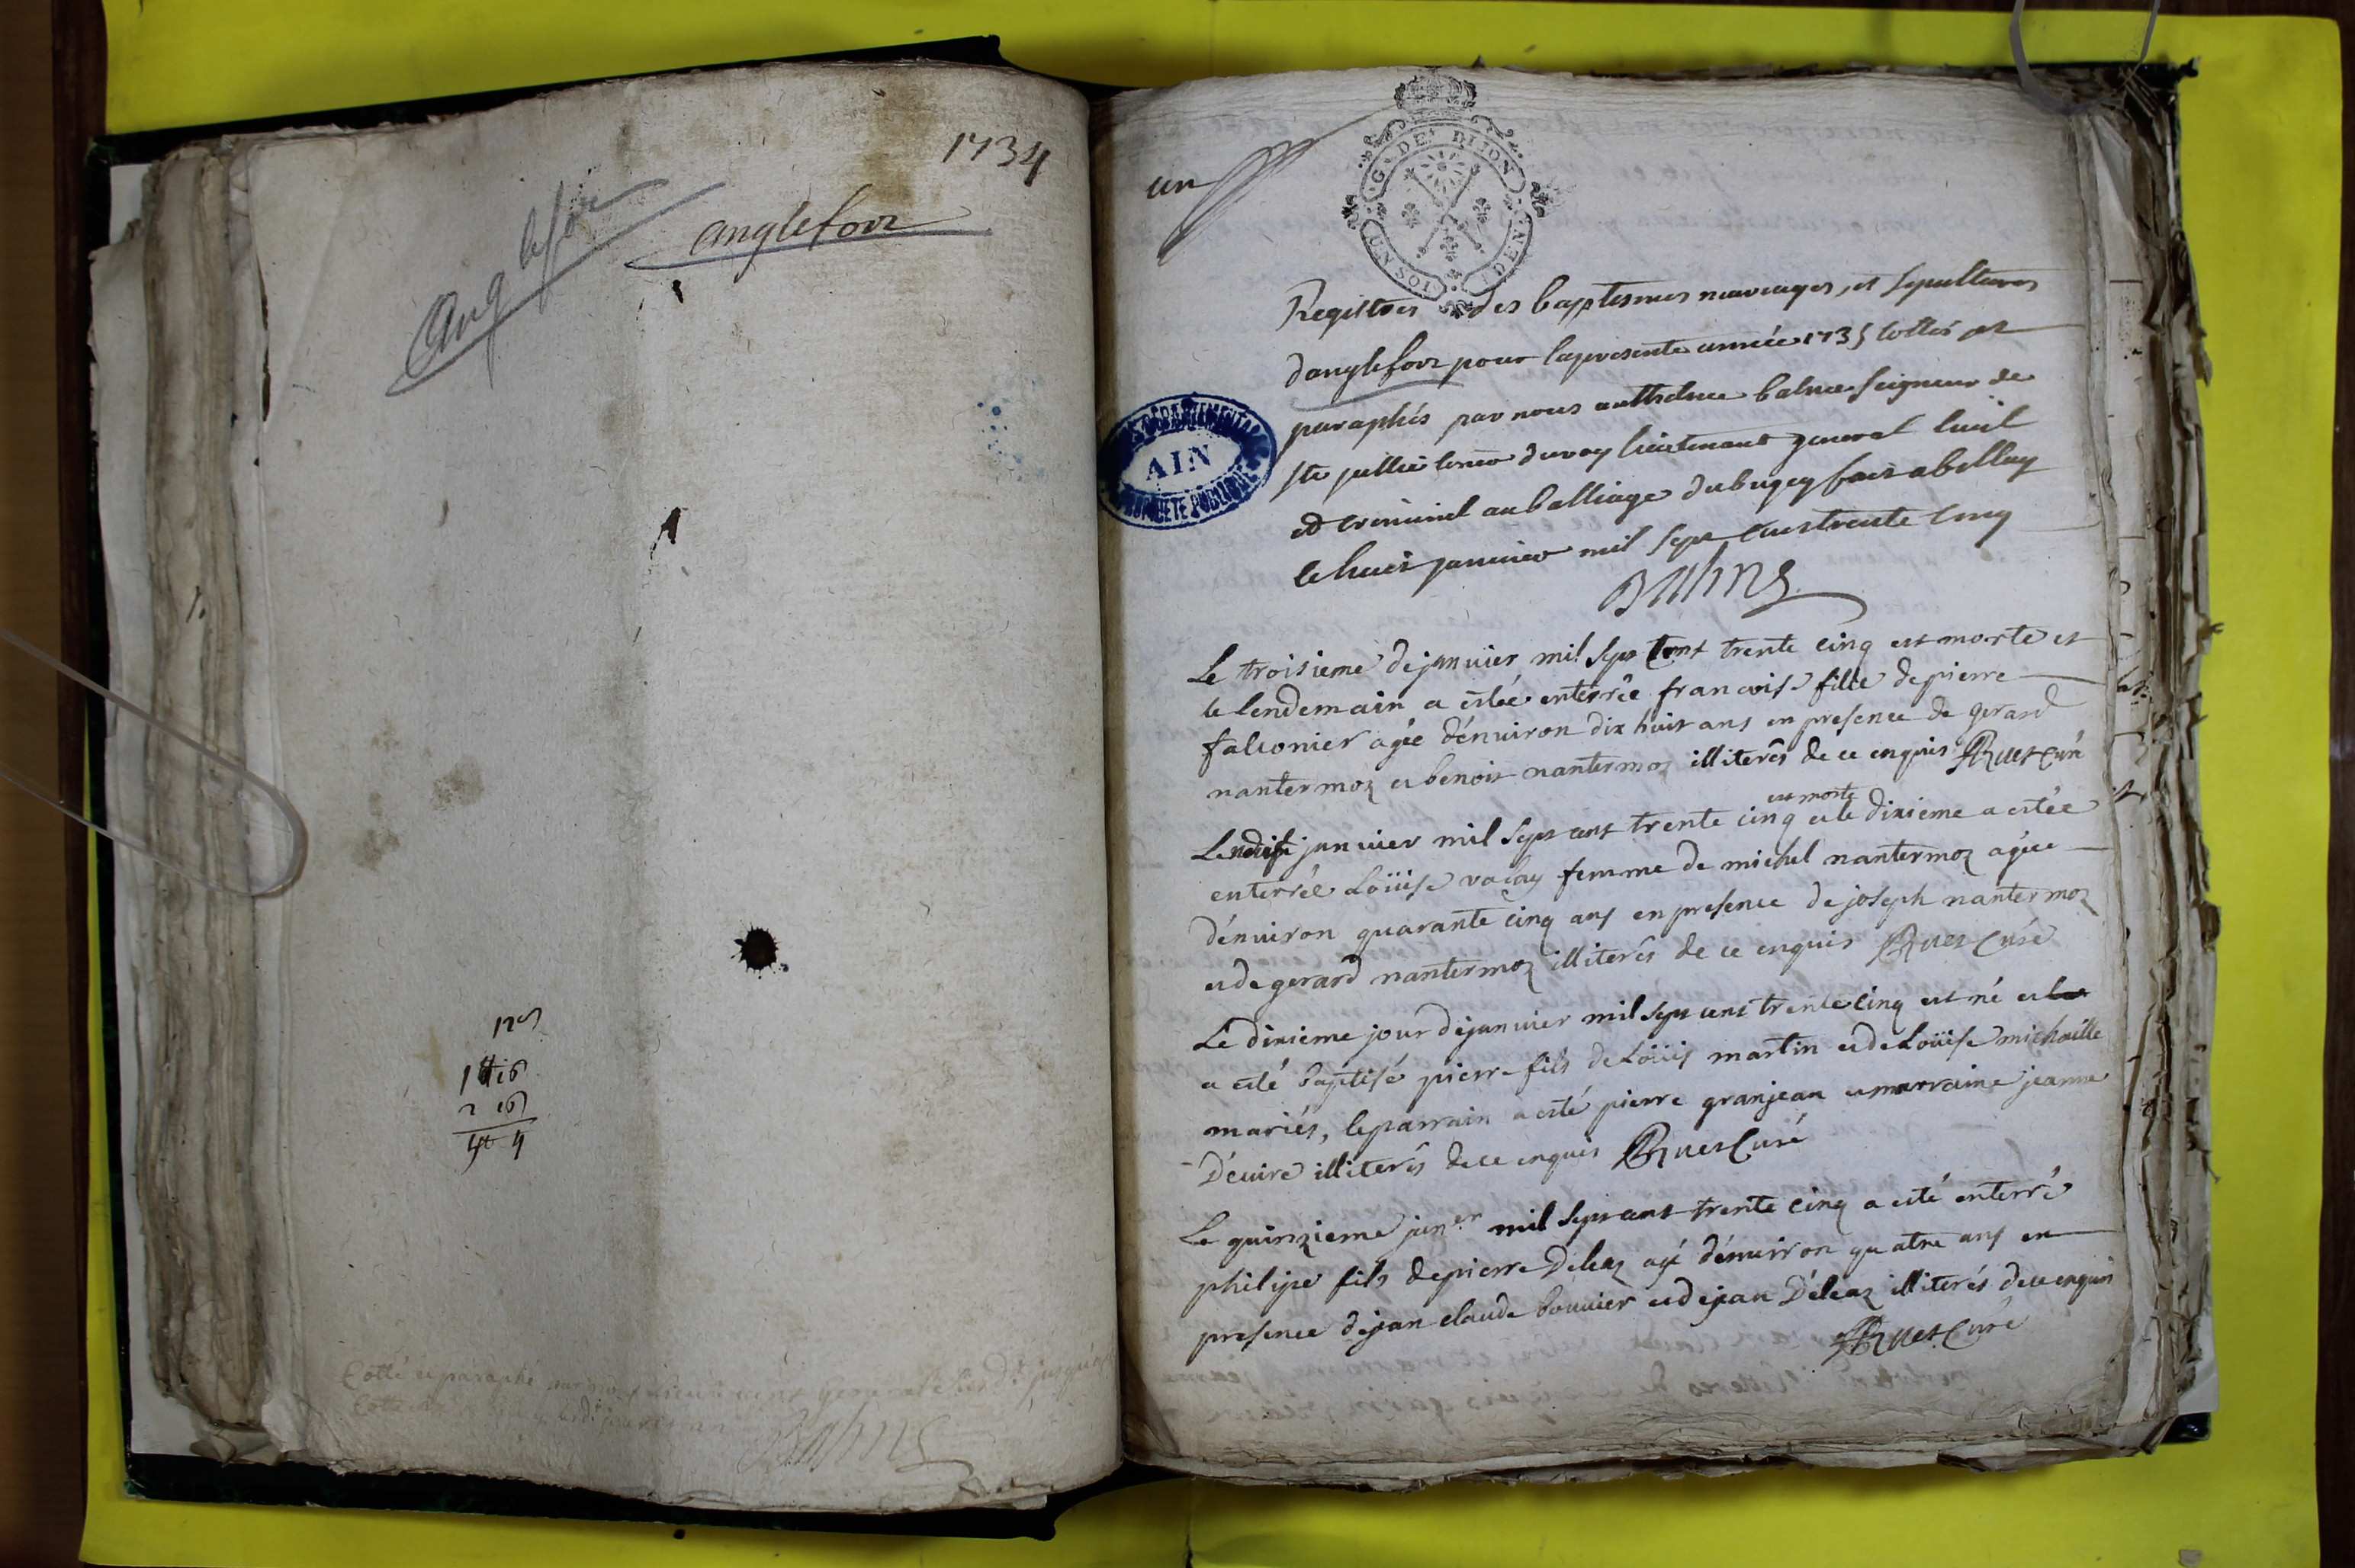 1734
anglefort
Anglefort
1716
un
G. DE DIJON
UN SOL
DEN
Registres des baptesmes mariages, et sepultures
danglefort pour la presente année 1735 cottés et
paraphés par nous anthelme balme seigneur de
ste jullie con.er du roy lieutenant general civil
et criminel au balliage du bugey fait a belley
le huit janvier mil sept cens trente cinq
Balme
AIN
PROPRIETE PUBLIQUE
Le troisieme de janvier mil sept cent trente cinq est morte et
le lendemain a estée enterrée francoise fille de pierre
falconier agée d'environ dix huit ans en presence de gerard
nantermoz et benoit nantermoz illiterés de ce enquis Ruet Curé
est morte
Le janvier mil sept cent trente cinq et le dixieme a estée
enterrée Loüise femme de michel nantermoz agée
d'environ quarante cinq ans en presence de joseph nantermoz
et de gerard nantermoz illiterés de ce enquis Ruet Curé
Le dixieme jour de janvier mil sept cent trente cinq est né et
a esté baptisé pierre fils de Loüis martin et de Loüise michaille
mariés, le parrain a esté pierre granjean et marraine jeanne
D'evire illiterés de ce enquis Ruet Curé
Le quinzieme jan.er mil sept cent trente cinq a esté enterré
philipe fils de pierre Deleaz agé d'environ quatre ans en
presence de jean claude bouvier et de jean Déleaz illiterés de ce enquis
Ruet Curé
Cotté et paraphé par nous lieutenant general
Balme